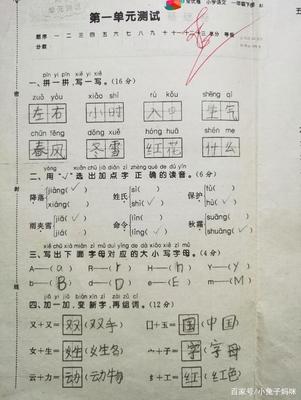 第一单元测试
题序 一 二 三 四 五 六 七 八 九 十 十一 十二 十三 总分 等级
分数
pīn yi pīn xiě yi xiě
一、拼一拼,写一写。(16分)
zuǒ yòu xiǎo shí rù kǒu shēng qì
左右 小时 入口 生气
chūn fēng dōng xuě hóng huā shén me
春风 冬雪 红花 什么
二、用“√”选出加点字正确的读音。(6分)
降落 jiàng(√) 姓氏 sì( ) 保护 hù(√)
雨夹雪 jiā(√) 命令 秋霜 shuāng(√)
三、写出下面字母对应的大小写字母。(4分)
A—(a) R—(r) H—(h) Y—(y)
b—(B) d—(D) e—(E) m—(M)
jiā yi jiā biàn xīn zì zài zǔ cí
四、加一加,变新字,再组词。(12分)
又+又=双(双手) 口+玉=国(中国)
女+生=姓(女生名) 宀+子=字(字母)
云+力=动(动物) 纟+工=红(红色)
百家号/小兔子妈咪